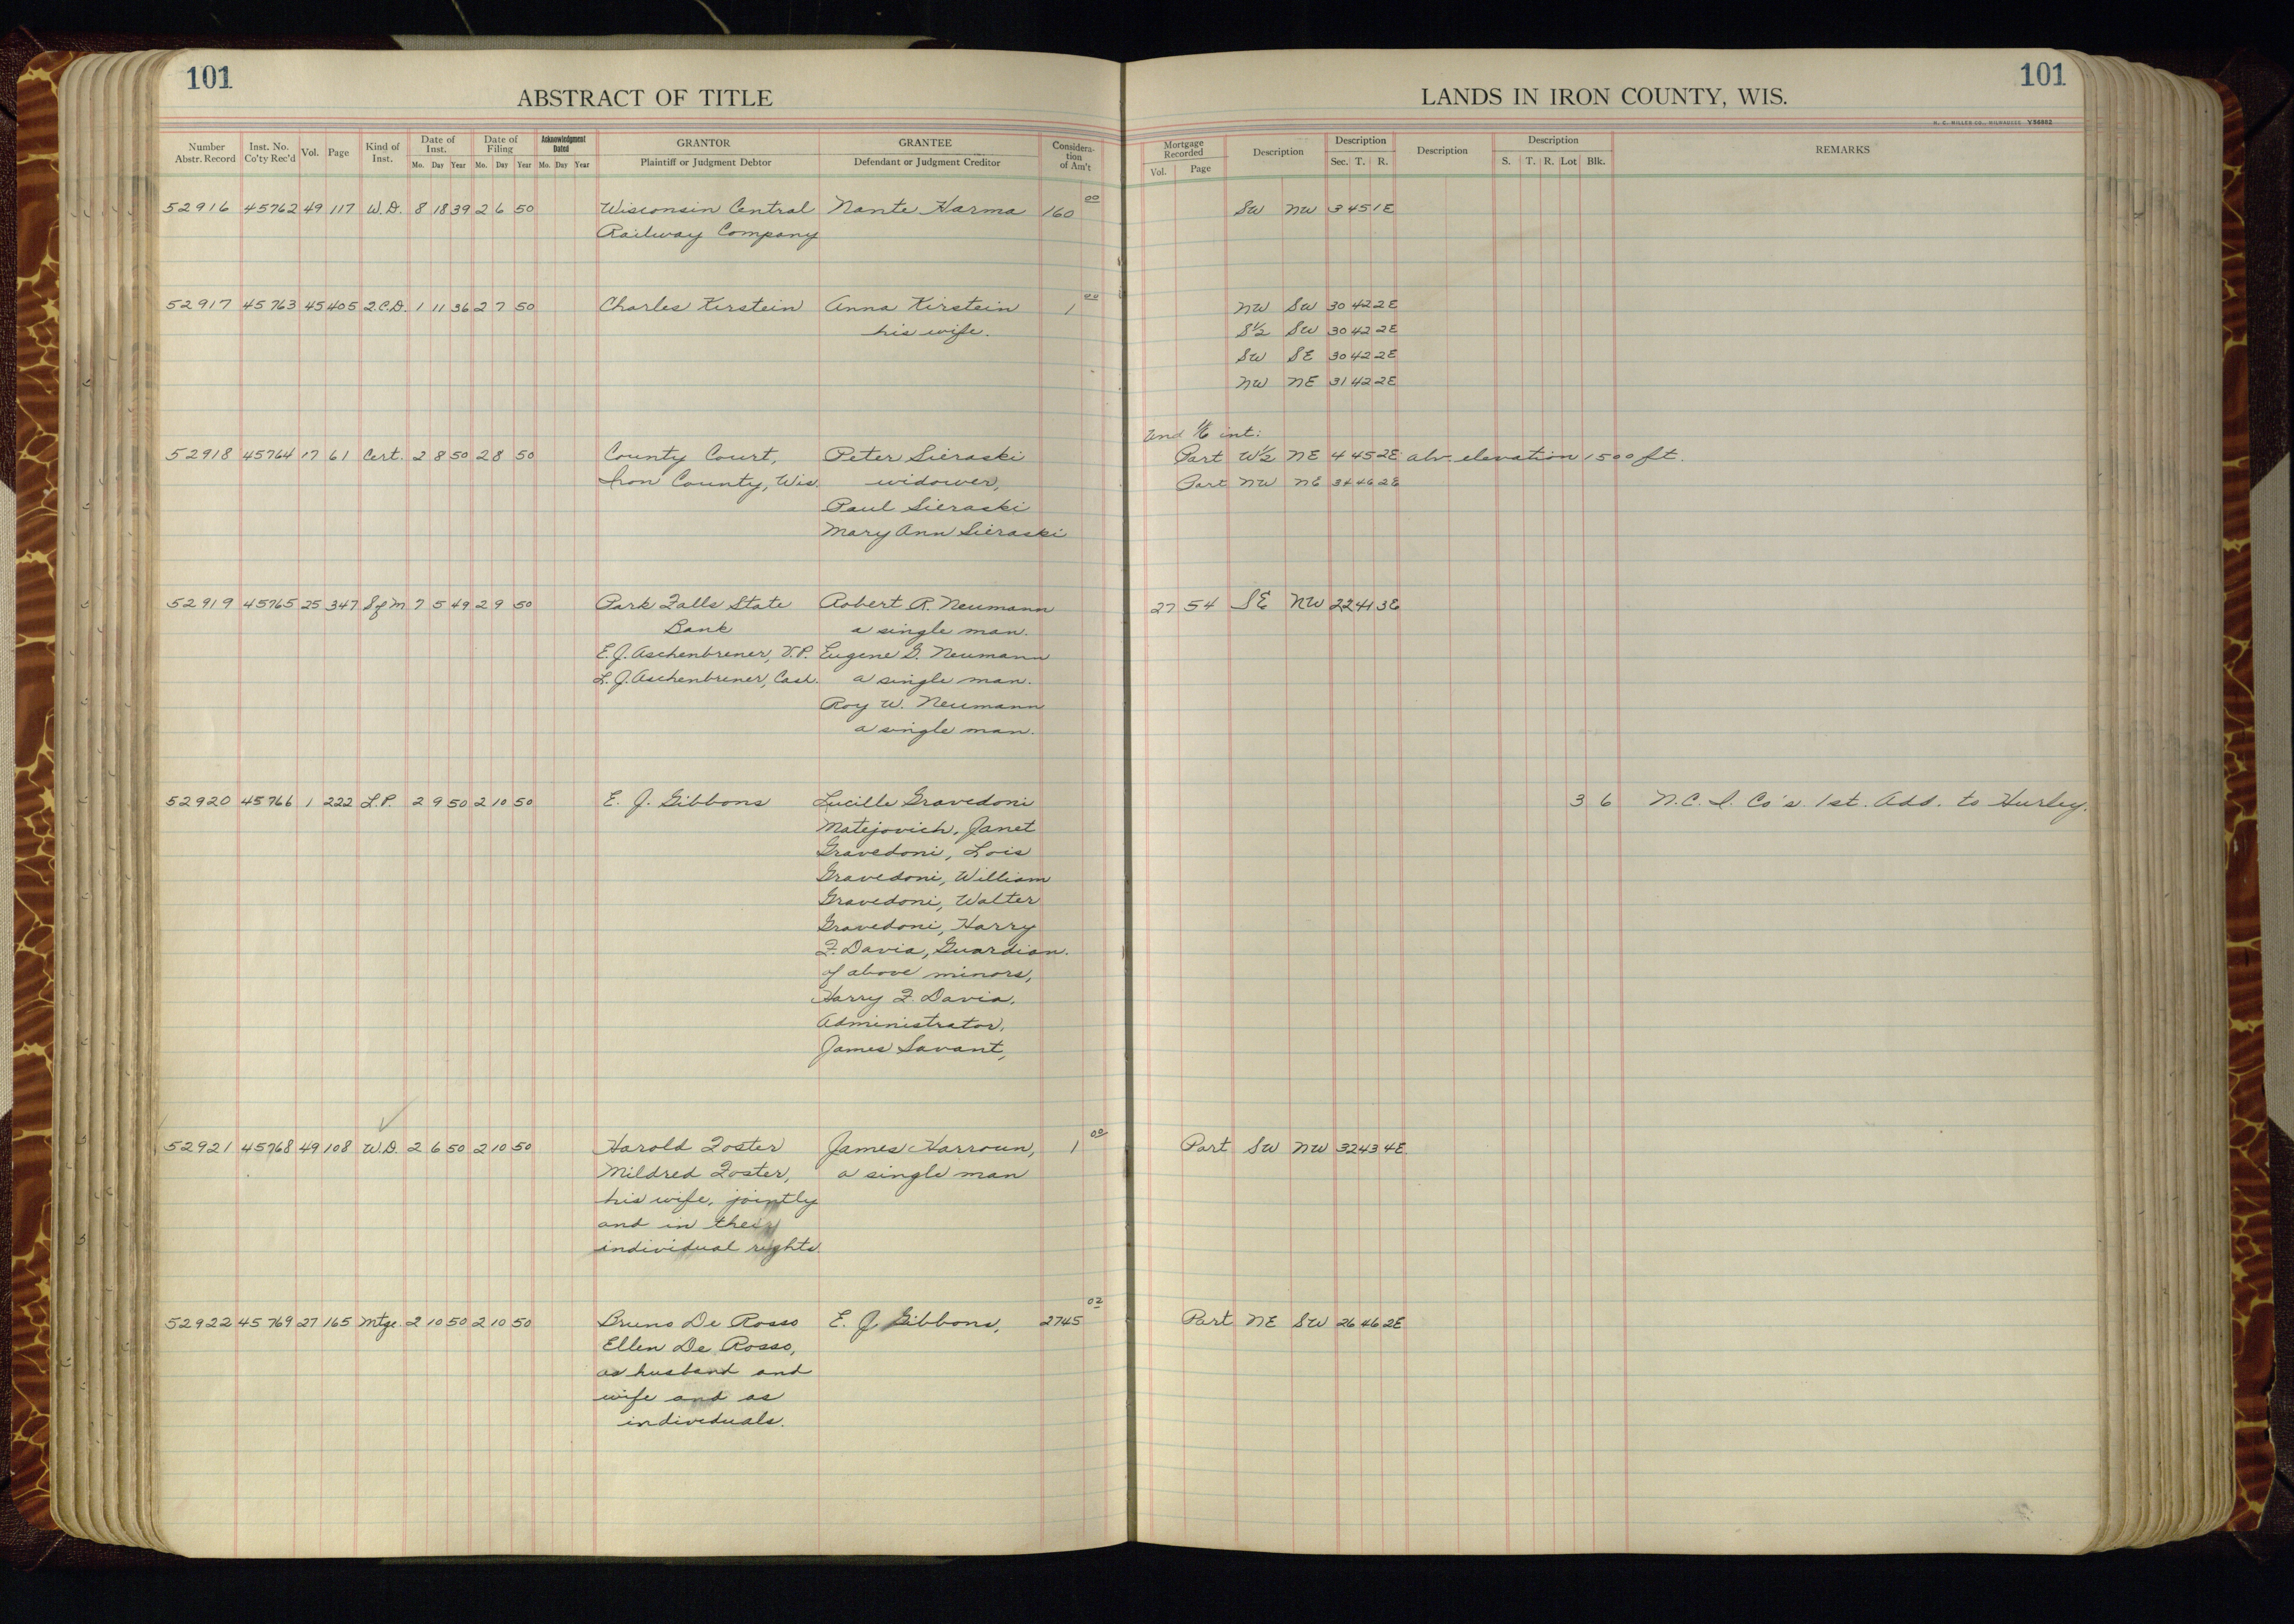 101
ABSTRACT OF TITLE
Number Abstr. Record | Inst. No. Co'ty Rec'd | Vol. | Page | Kind of Inst. | Date of Inst. Mo. Day Year | Date of Filing Mo. Day Year | Acknowledgment Dated Mo. Day Year | GRANTOR Plaintiff or Judgment Debtor | GRANTEE Defendant or Judgment Creditor | Considera-tion of Am't
52916 45762 49 117 W.D. 8 18 39 2 6 50 Wisconsin Central Nante Harma 160 00
Railway Company
52917 45763 45 405 2.C.D. 1 11 36 2 7 50 Charles Kirstein Anna Kirstein 1 00
his wife.
52918 45764 17 61 Cert. 2 8 50 2 8 50 County Court, Peter Sieraski
Iron County, Wis. widower,
Paul Sieraski
Mary Ann Sieraski
52919 45765 25 347 Sfm 7 5 49 2 9 50 Park Falls State Robert R. Neumann
Bank a single man.
E. J. Aschenbrener, V.P. Eugene G. Neumann
L. J. Aschenbrener, Cash. a single man.
Roy W. Neumann
a single man.
52920 45766 1 222 L.P. 2 9 50 2 10 50 E. J. Gibbons Lucille Gravedoni
Matejovich, Janet
Gravedoni, Lois
Gravedoni, William
Gravedoni, Walter
Gravedoni, Harry
F. Davia, Guardian.
of above minors,
Harry F. Davia,
Administrator.
James Savant,
52921 45768 49 108 W.D. 2 6 50 2 10 50 Harold Foster James Harroun, 1 00
Mildred Foster, a single man
his wife, jointly
and in their
individual rights
52922 45769 27 165 Mtge. 2 10 50 2 10 50 Bruno De Rosso E. J. Gibbons, 2745 02
Ellen De Rosso,
as husband and
wife and as
individuals.
101
LANDS IN IRON COUNTY, WIS.
H. C. MILLER CO., MILWAUKEE V56882
Mortgage Recorded Vol. Page | Description | Description Sec. T. R. | Description | Description S. T. R. Lot Blk. | REMARKS
SW NW 3 45 1E
NW SW 30 42 2E
S½ SW 30 42 2E
SW SE 30 42 2E
NW NE 31 42 2E
Und 1/6 int:
Part W½ NE 4 45 2E abv. elevation 1500 ft.
Part NW NE 34 46 2E
27 54 SE NW 22 41 3E
3 6 N.C.I. Co's 1st. Add. to Hurley.
Part SW NW 32 43 4E
Part NE SW 26 46 2E